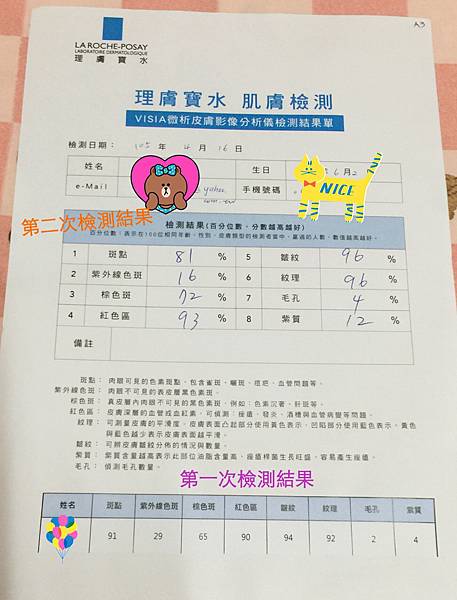 A3
LA ROCHE-POSAY
LABORATOIRE DERMATOLOGIQUE
理膚寶水
理膚寶水 肌膚檢測
VISIA微析皮膚影像分析儀檢測結果單
檢測日期： 105 年 4 月 16 日
姓名 生日 年 6 月 2
e-Mail @yahoo 手機號碼
com.tw
NICE
第二次檢測結果
檢測結果(百分位數，分數越高越好)
百分位數：表示在100位相同年齡、性別、皮膚類型的檢測者當中，贏過的人數，數值越高越好。
1 斑點 81 % 5 皺紋 96 %
2 紫外線色斑 16 % 6 紋理 96 %
3 棕色斑 72 % 7 毛孔 4 %
4 紅色區 93 % 8 紫質 12 %
備註
斑點： 肉眼可見的色素斑點，包含雀斑、曬斑、痘疤、血管問題等。
紫外線色斑： 肉眼不可見的表皮層黑色素斑。
棕色斑： 真皮層內肉眼不可見的黑色素斑，例如：色素沉著、肝斑等。
紅色區： 皮膚深層的血管或血紅素，可偵測：痤瘡、發炎、酒糟與血管病變等問題。
紋理： 可測量皮膚的平滑度。皮膚表面凸起部分使用黃色表示，凹陷部分使用藍色表示。黃色
與藍色越少表示皮膚表面越平滑。
皺紋： 可辨皮膚皺紋分佈的情況與數量。
紫質： 紫質含量越高表示此部位油脂含量高、痤瘡桿菌生長旺盛，容易產生痤瘡。
毛孔： 偵測毛孔數量。
第一次檢測結果
姓名 斑點 紫外線色斑 棕色斑 紅色區 皺紋 紋理 毛孔 紫質
91 29 65 90 94 92 2 4